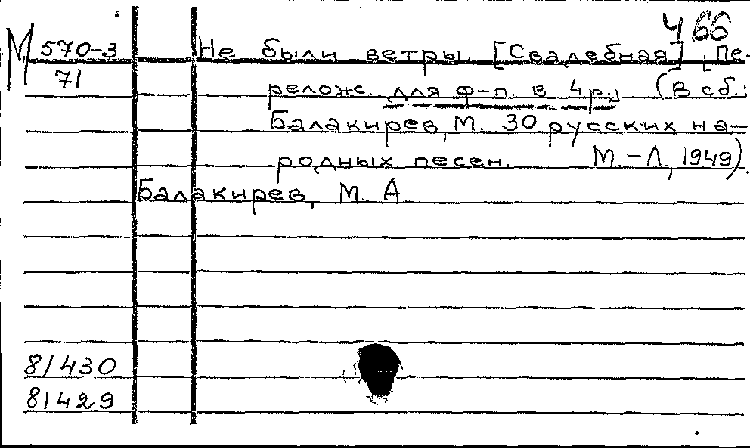 4 66
М 570-3 Не были ветры. [Свадебная]. [Пе-
71 релож. для ф-п. в 4 р.] (В сб.:
Балакирев, М. 30 русских на-
родных песен. М.-Л., 1949).
Балакирев, М. А.
81430
81429